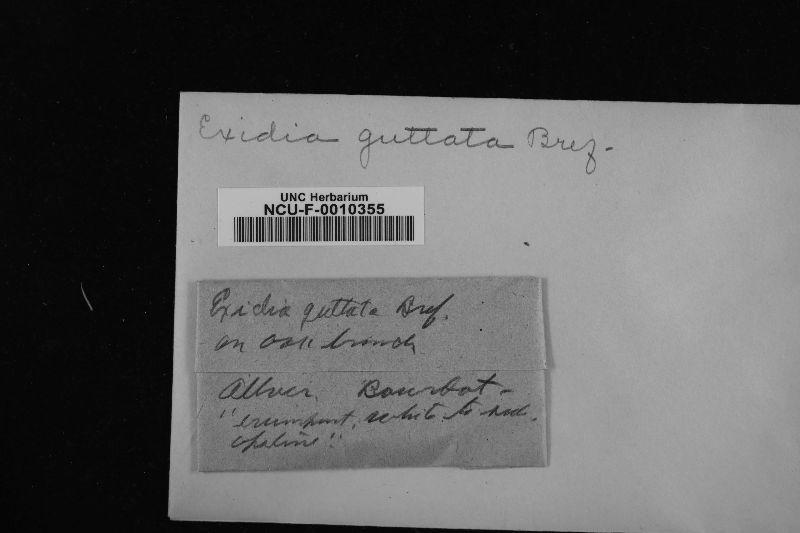 Exidia guttata Bref.
UNC Herbarium
NCU-F-0010355
Exidia guttata Bref.
on oak branch
Allier. Bourdot -
"erumpent, white to
opaline".